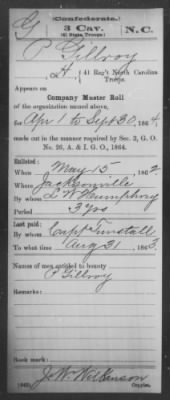 (Confederate.)
G 3 Cav. N.C.
(41 State Troops.)
P Gillroy
Pt, { 41 Reg't North Carolina Troops.
Appears on
Company Muster Roll
of the organization named above,
for Apr 1 to Sept 30, 1864,
made out in the manner required by Sec. 3, G. O.
No. 26, A. & I. G. O., 1864.
Enlisted:
When May 15, 1862
Where Jacksonville
By whom L W Humphrey
Period 3 yrs
Last paid:
By whom Capt Tunstall
To what time Aug 31, 1863.
Names of men entitled to bounty
P Gillroy
Remarks:
Book mark:
J. W. Wilkinson
Copyist.